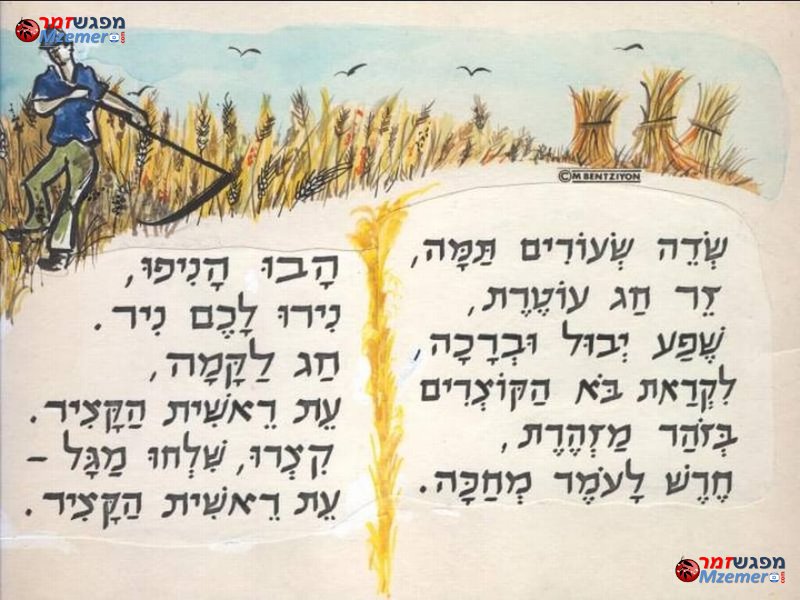 מפגשזמר
Mzemer
©M BENTZIYON
שְׂדֵה שְׂעוֹרִים תַּמָּה,
זֵר חַג עוֹטֶרֶת,
שֶׁפַע יְבוּל וּבְרָכָה,
לִקְרַאת בֹּא הַקּוֹצְרִים
בְּזֹהַר מַזְהֶרֶת,
חֶרֶשׁ לָעֹמֶר מְחַכָּה.
הָבוּ הָנִיפוּ,
נִירוּ לָכֶם נִיר.
חַג לַקָּמָה,
עֵת רֵאשִׁית הַקָּצִיר.
קִצְרוּ, שִׁלְחוּ מַגָּל –
עֵת רֵאשִׁית הַקָּצִיר.
מפגשזמר
Mzemer